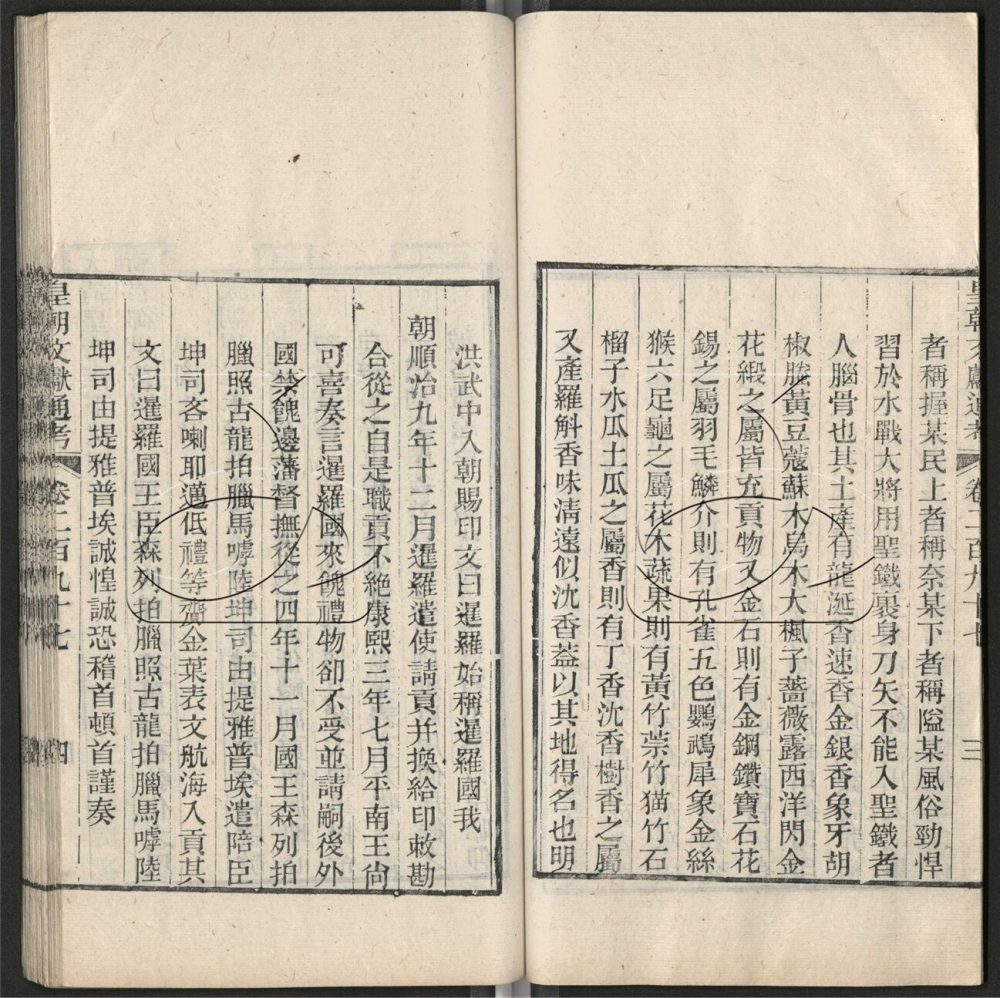 皇朝文獻通考 卷二百九十七 三
者稱握某民上者稱奈某下者稱隘某風俗勁悍
習於水戰大將用聖鐵裹身刀矢不能入聖鐵者
人腦骨也其土產有龍涎香速香金銀香象牙胡
椒騰黃豆蔻蘇木烏木大楓子薔薇露西洋閃金
花緞之屬皆充貢物又金石則有金鋼鑽寶石花
錫之屬羽毛鱗介則有孔雀五色鸚鵡犀象金絲
猴六足龜之屬花木蔬果則有黃竹𥬠竹猫竹石
榴子水瓜土瓜之屬香則有丁香沈香樹香之屬
又產羅斛香味淸遠似沈香葢以其地得名也明
洪武中入朝賜印文曰暹羅始稱暹羅國我
朝順治九年十二月暹羅遣使請貢并換給印敕勘
合從之自是職貢不絕康熙三年七月平南王尙
可喜奏言暹羅國來餽禮物卻不受並請嗣後外
國禁餽邊藩督撫從之四年十一月國王森列拍
臘照古龍拍臘馬嘑陸坤司由提雅普埃遣陪臣
坤司吝喇耶邁低禮等齎金葉表文航海入貢其
文曰暹羅國王臣森列拍臘照古龍拍臘馬嘑陸
坤司由提雅普埃誠惶誠恐稽首頓首謹奏
皇朝文獻通考 卷二百九十七 四